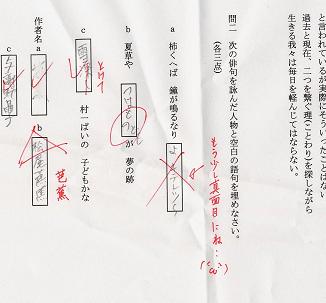 と言われているが実際にそういったことはない
過去と現在、二つを繋ぐ理(ことわり)を探しながら
生きる我々は毎日を軽んじてはならない。
問二 次の俳句を詠んだ人物と空白の語句を埋めなさい。
(各三点)
もう少し真面目にね…
a 柿くへば 鐘が鳴るなり
b 夏草や つけものが 夢の跡
とけて
c 村一ぱいの 子どもかな
作者名
a
b 松尾芭蕉
芭蕉
c